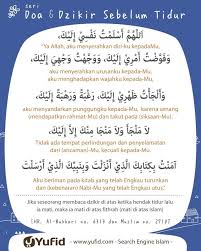 Seri
Doa & Dzikir Sebelum Tidur
اَللَّهُمَّ أَسْلَمْتُ نَفْسِيْ إِلَيْكَ،
"Ya Allah, aku menyerahkan diriku kepadaMu,
وَفَوَّضْتُ أَمْرِيْ إِلَيْكَ، وَوَجَّهْتُ وَجْهِيَ إِلَيْكَ،
aku menyerahkan urusanku kepadaMu,
aku menghadapkan wajahku kepadaMu,
وَأَلْجَأْتُ ظَهْرِيْ إِلَيْكَ، رَغْبَةً وَرَهْبَةً إِلَيْكَ،
aku menyandarkan punggungku kepadaMu, karena senang
(mendapatkan rahmat-Mu) dan takut pada (siksaan-Mu).
لاَ مَلْجَأَ وَلاَ مَنْجَا مِنْكَ إِلاَّ إِلَيْكَ،
Tidak ada tempat perlindungan dan penyelamatan
dari (ancaman)-Mu, kecuali kepadaMu.
آمَنْتُ بِكِتَابِكَ الَّذِيْ أَنْزَلْتَ وَبِنَبِيِّكَ الَّذِيْ أَرْسَلْتَ
Aku beriman pada kitab yang telah Engkau turunkan
dan (kebenaran) Nabi-Mu yang telah Engkau utus".
Jika seseorang membaca dzikir di atas ketika hendak tidur lalu
ia mati, maka ia mati di atas fithrah (mati di atas Islam)
(HR. Al-Bukhari no. 6313 dan Muslim no. 2710)
YUFiD
www.yufid.com - Search Engine Islam -